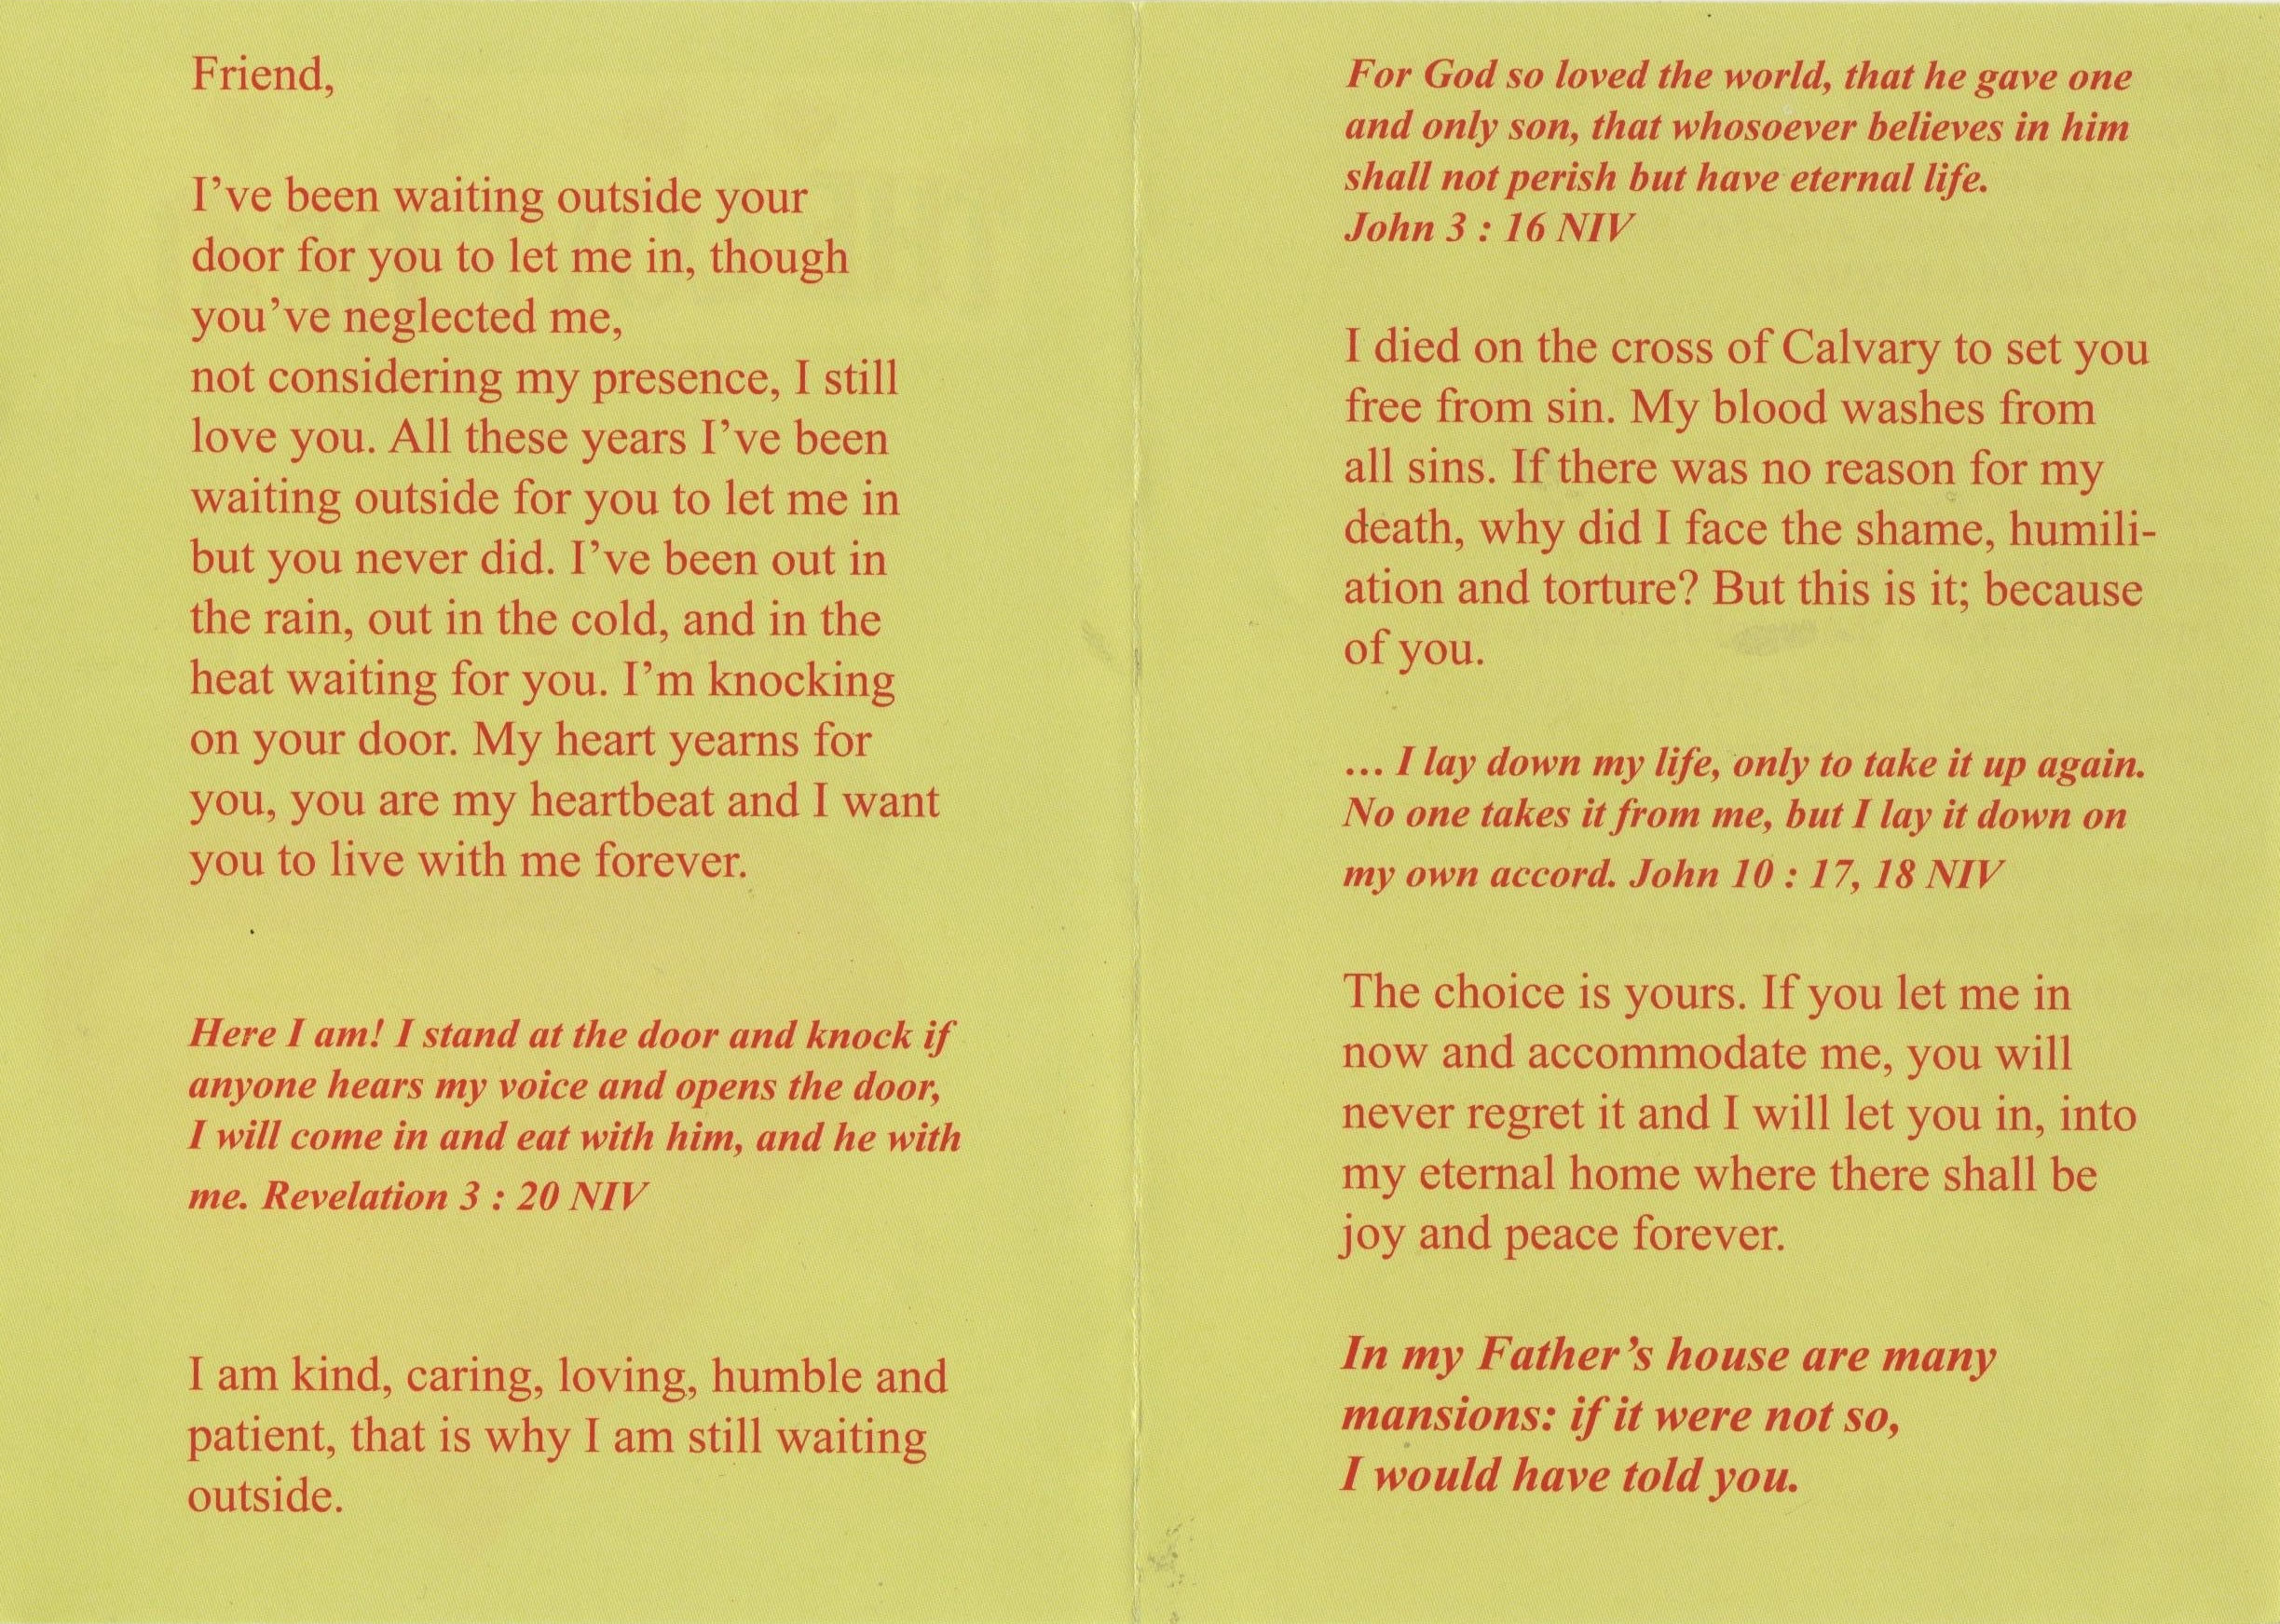 Friend,
I’ve been waiting outside your
door for you to let me in, though
you’ve neglected me,
not considering my presence, I still
love you. All these years I’ve been
waiting outside for you to let me in
but you never did. I’ve been out in
the rain, out in the cold, and in the
heat waiting for you. I’m knocking
on your door. My heart yearns for
you, you are my heartbeat and I want
you to live with me forever.
Here I am! I stand at the door and knock if
anyone hears my voice and opens the door,
I will come in and eat with him, and he with
me. Revelation 3 : 20 NIV
I am kind, caring, loving, humble and
patient, that is why I am still waiting
outside.
For God so loved the world, that he gave one
and only son, that whosoever believes in him
shall not perish but have eternal life.
John 3 : 16 NIV
I died on the cross of Calvary to set you
free from sin. My blood washes from
all sins. If there was no reason for my
death, why did I face the shame, humili-
ation and torture? But this is it; because
of you.
... I lay down my life, only to take it up again.
No one takes it from me, but I lay it down on
my own accord. John 10 : 17, 18 NIV
The choice is yours. If you let me in
now and accommodate me, you will
never regret it and I will let you in, into
my eternal home where there shall be
joy and peace forever.
In my Father’s house are many
mansions: if it were not so,
I would have told you.